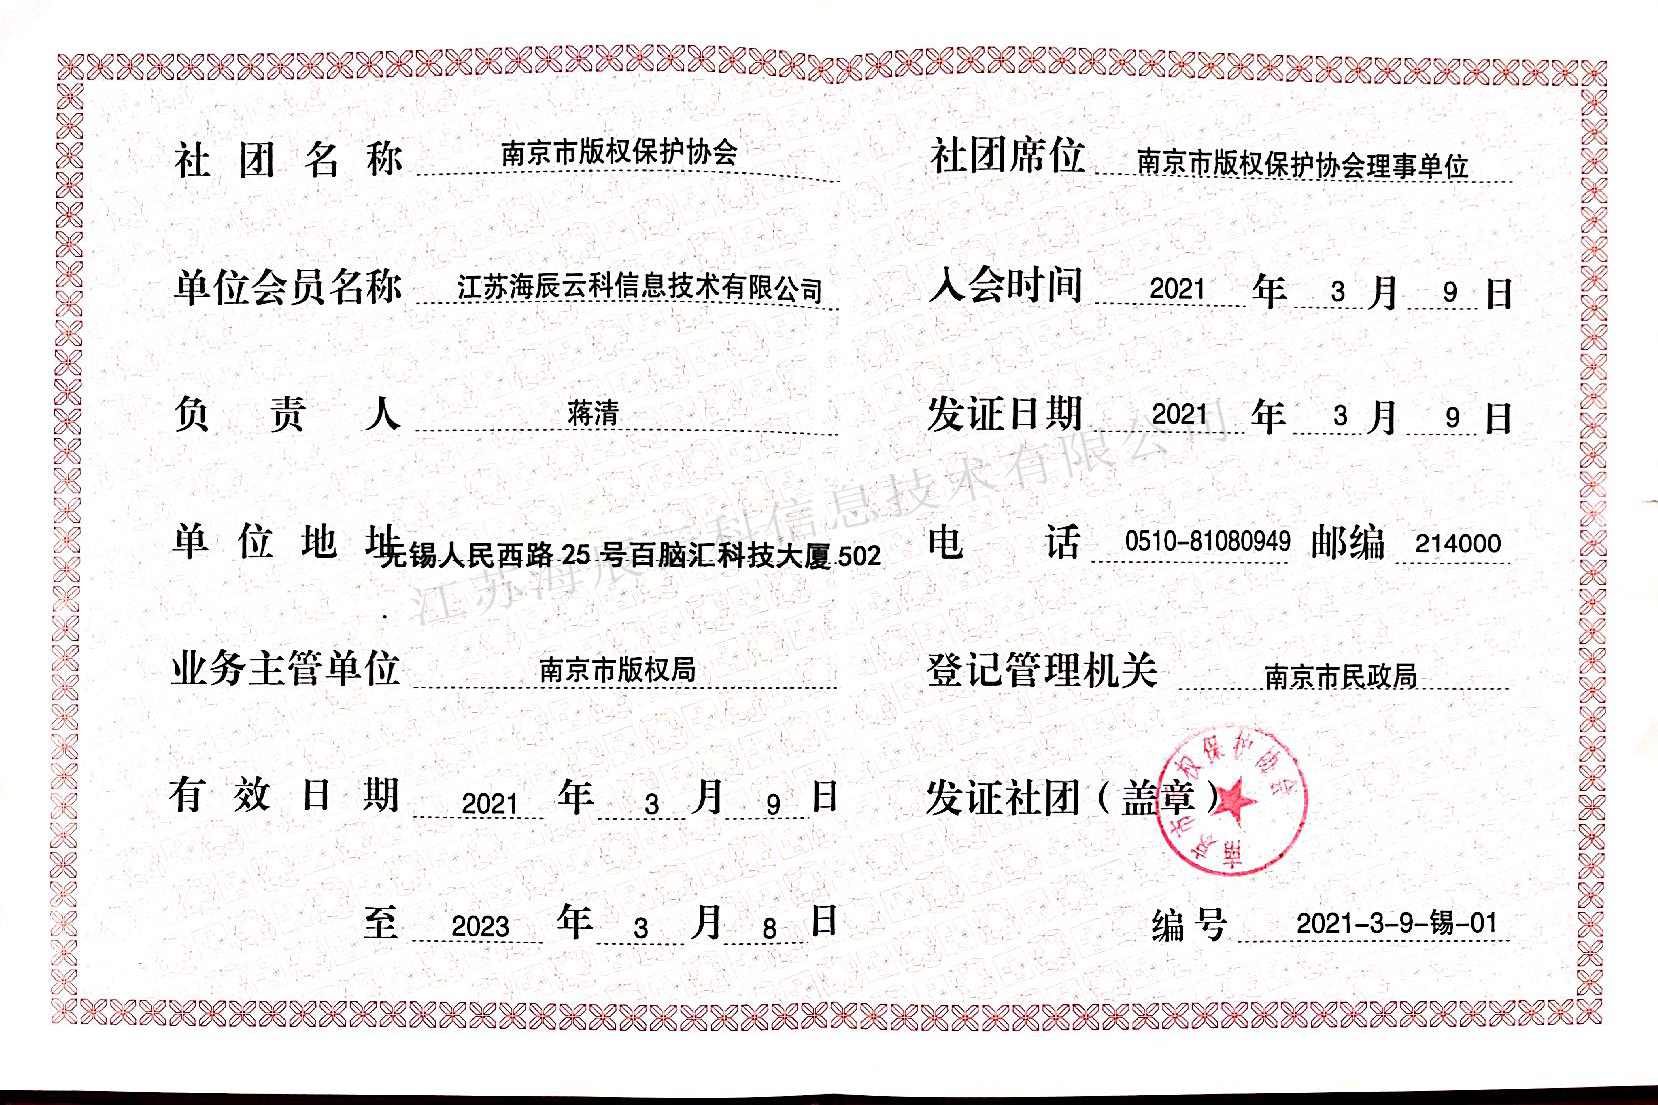 社团名称 南京市版权保护协会
单位会员名称 江苏海辰云科信息技术有限公司
负责人 蒋清
单位地址 无锡人民西路25号百脑汇科技大厦502
业务主管单位 南京市版权局
有效日期 2021年3月9日
至2023年3月8日
社团席位 南京市版权保护协会理事单位
入会时间 2021年3月9日
发证日期 2021年3月9日
电话 0510-81080949 邮编 214000
登记管理机关 南京市民政局
发证社团（盖章）
南京市版权保护协会
编号 2021-3-9-锡-01
江苏海辰云科信息技术有限公司